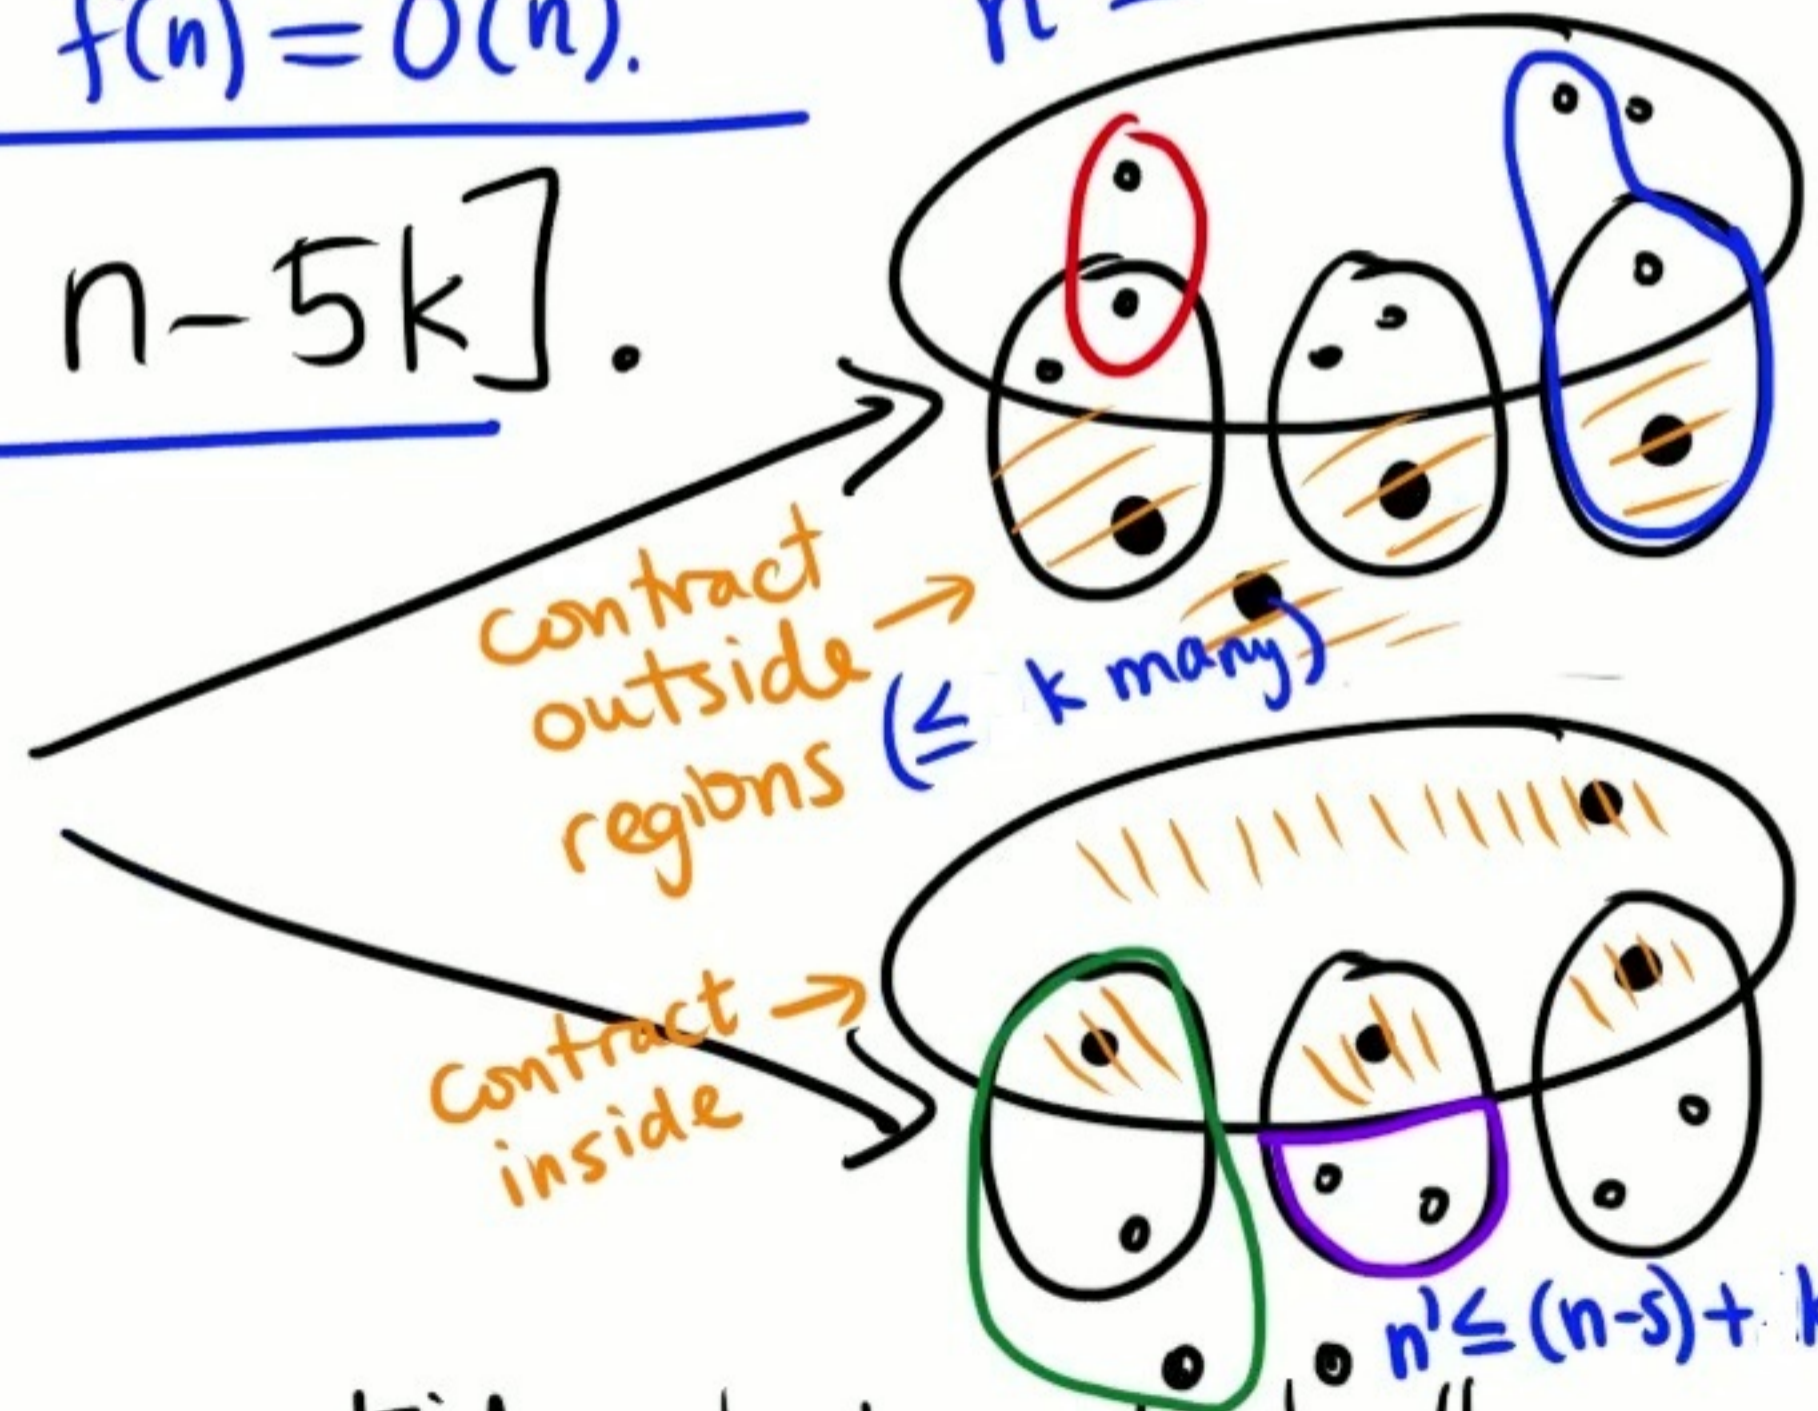 f(n) = O(n).
n
n-5k].
contract
outside →
regions
(≤ k many)
contract →
inside
n' ≤ (n-s) + k